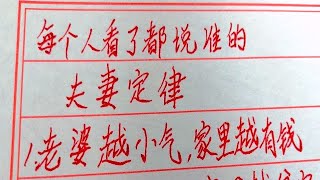 每个人看了都说准的
夫妻定律
1,老婆越小气,家里越有钱